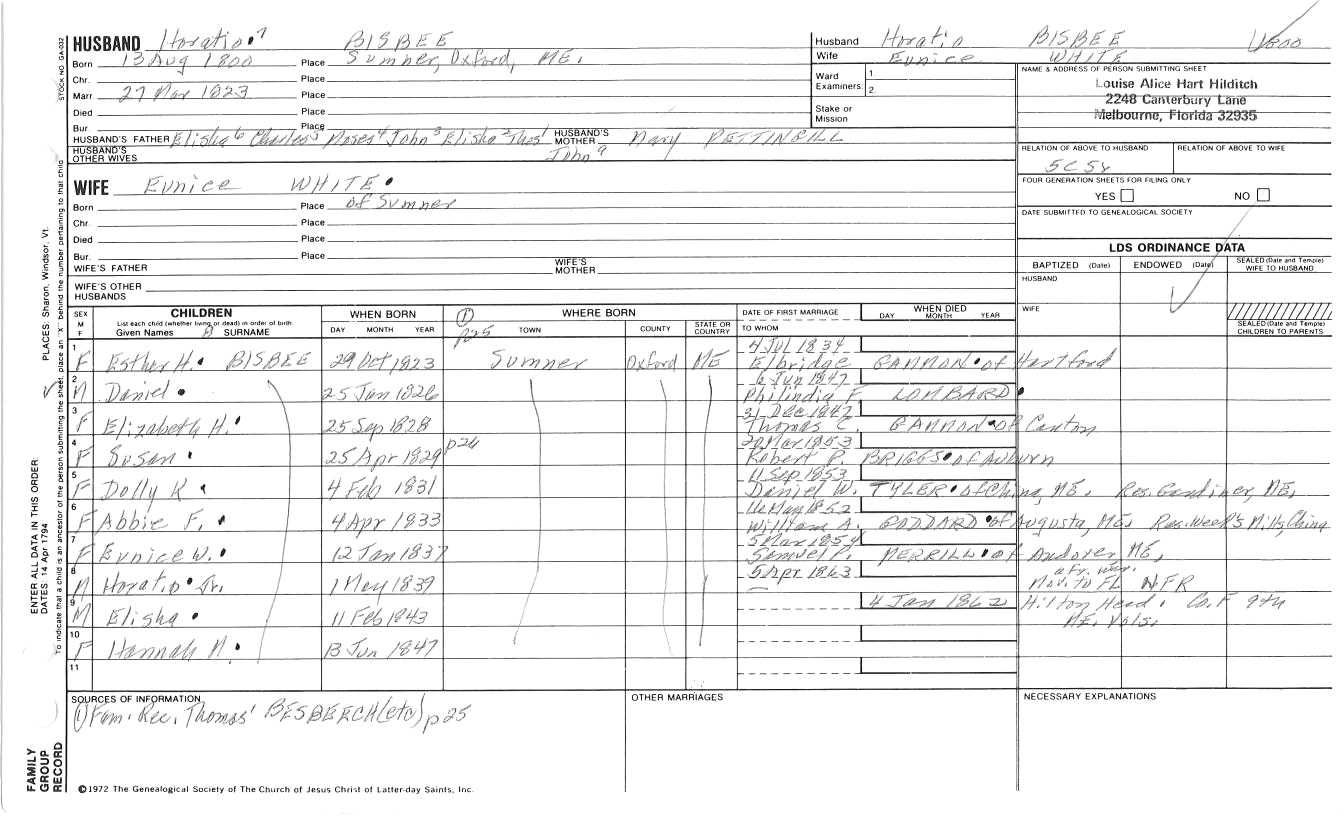 HUSBAND Horatio 7 BISBEE
Born 13 Aug 1800 Place Sumner, Oxford, ME.
Chr. Place
Marr 27 Mar 1823 Place
Died Place
Bur. Place
HUSBAND'S FATHER Elisha 6 Charles 5 Moses 4 John 3 Elisha 2 Thos 1 HUSBAND'S MOTHER Mary PETTINGILL
HUSBAND'S OTHER WIVES John 9
Husband Horatio BISBEE 1800
Wife Eunice WHITE
Ward Examiners: 1
2
Stake or Mission
NAME & ADDRESS OF PERSON SUBMITTING SHEET
Louise Alice Hart Hilditch
2248 Canterbury Lane
Melbourne, Florida 32935
RELATION OF ABOVE TO HUSBAND RELATION OF ABOVE TO WIFE
5C5r
FOUR GENERATION SHEETS FOR FILING ONLY
YES NO
DATE SUBMITTED TO GENEALOGICAL SOCIETY
WIFE Eunice WHITE
Born Place of Sumner
Chr. Place
Died Place
Bur. Place
WIFE'S FATHER WIFE'S MOTHER
WIFE'S OTHER HUSBANDS
LDS ORDINANCE DATA
BAPTIZED (Date) ENDOWED (Date) SEALED (Date and Temple) WIFE TO HUSBAND
HUSBAND
WIFE
SEALED (Date and Temple) CHILDREN TO PARENTS
SEX M F
CHILDREN
List each child (whether living or dead) in order of birth
Given Names SURNAME
WHEN BORN
DAY MONTH YEAR
① p25
WHERE BORN
TOWN COUNTY STATE OR COUNTRY
DATE OF FIRST MARRIAGE
TO WHOM
WHEN DIED
DAY MONTH YEAR
1 F Esther H. BISBEE 29 Oct 1823 Sumner Oxford ME 4 Jul 1834 Elbridge GAMMON of Hartford
2 M Daniel 25 Jan 1826 6 Jun 1847 Philindia F. LOMBARD
3 F Elizabeth H. 25 Sep 1828 31 Dec 1842 Thomas C. GAMMON of Canton
4 F Susan 25 Apr 1829 p26 20 Mar 1853 Robert P. BRIGGS of Auburn
5 F Dolly K 4 Feb 1831 11 Sep 1853 Daniel W. TYLER of China, ME. Res. Gardiner, ME.
6 F Abbie F. 4 Apr 1833 16 May 1852 William A. GODDARD of Augusta, ME. Res. Week's Mills, China
7 F Eunice W. 12 Jan 1837 5 Mar 1854 Samuel P. MERRILL of Andover ME.
8 M Horatio Jr. 1 May 1839 5 Apr 1863 — aft. war. Mov. to FL NFR
9 M Elisha 11 Feb 1843 4 Jan 1862 Hilton Head. Co. F 9th ME. Vols.
10 F Hannah M. 13 Jun 1847
11
SOURCES OF INFORMATION
① Fam. Rec. Thomas' BESBEECH (etc) p25
OTHER MARRIAGES
NECESSARY EXPLANATIONS
©1972 The Genealogical Society of The Church of Jesus Christ of Latter-day Saints, Inc.
STOCK NO. GA-032
PLACES: Sharon, Windsor, Vt.
ENTER ALL DATA IN THIS ORDER
DATES 14 Apr 1794
To indicate that a child is an ancestor of the person submitting the sheet, place an "X" behind the number pertaining to that child
FAMILY GROUP RECORD